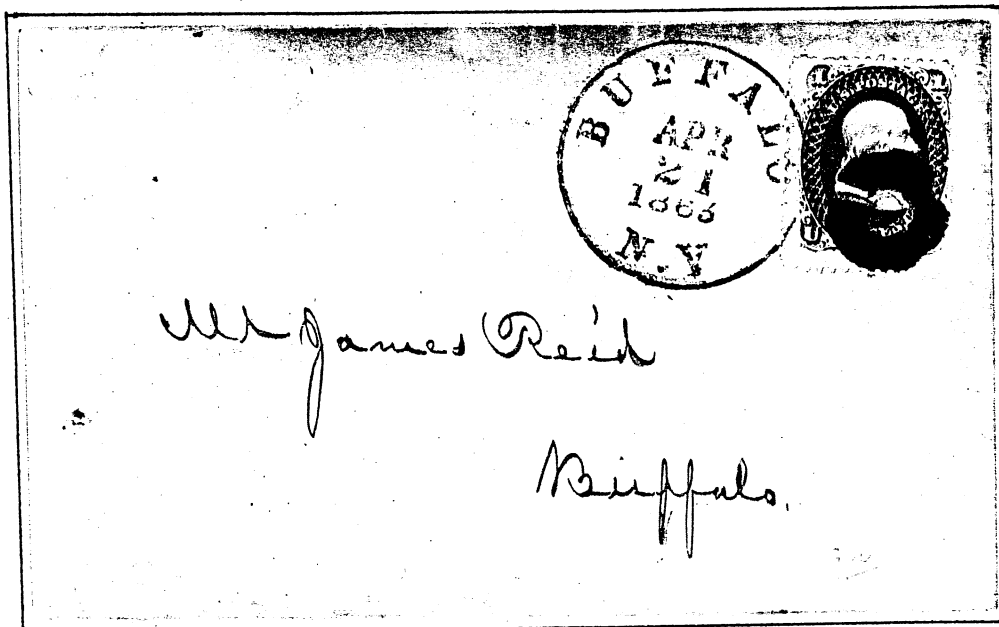 BUFFALO
APR
21
1863
N.Y
1 1
Mr James Reid
Buffalo.